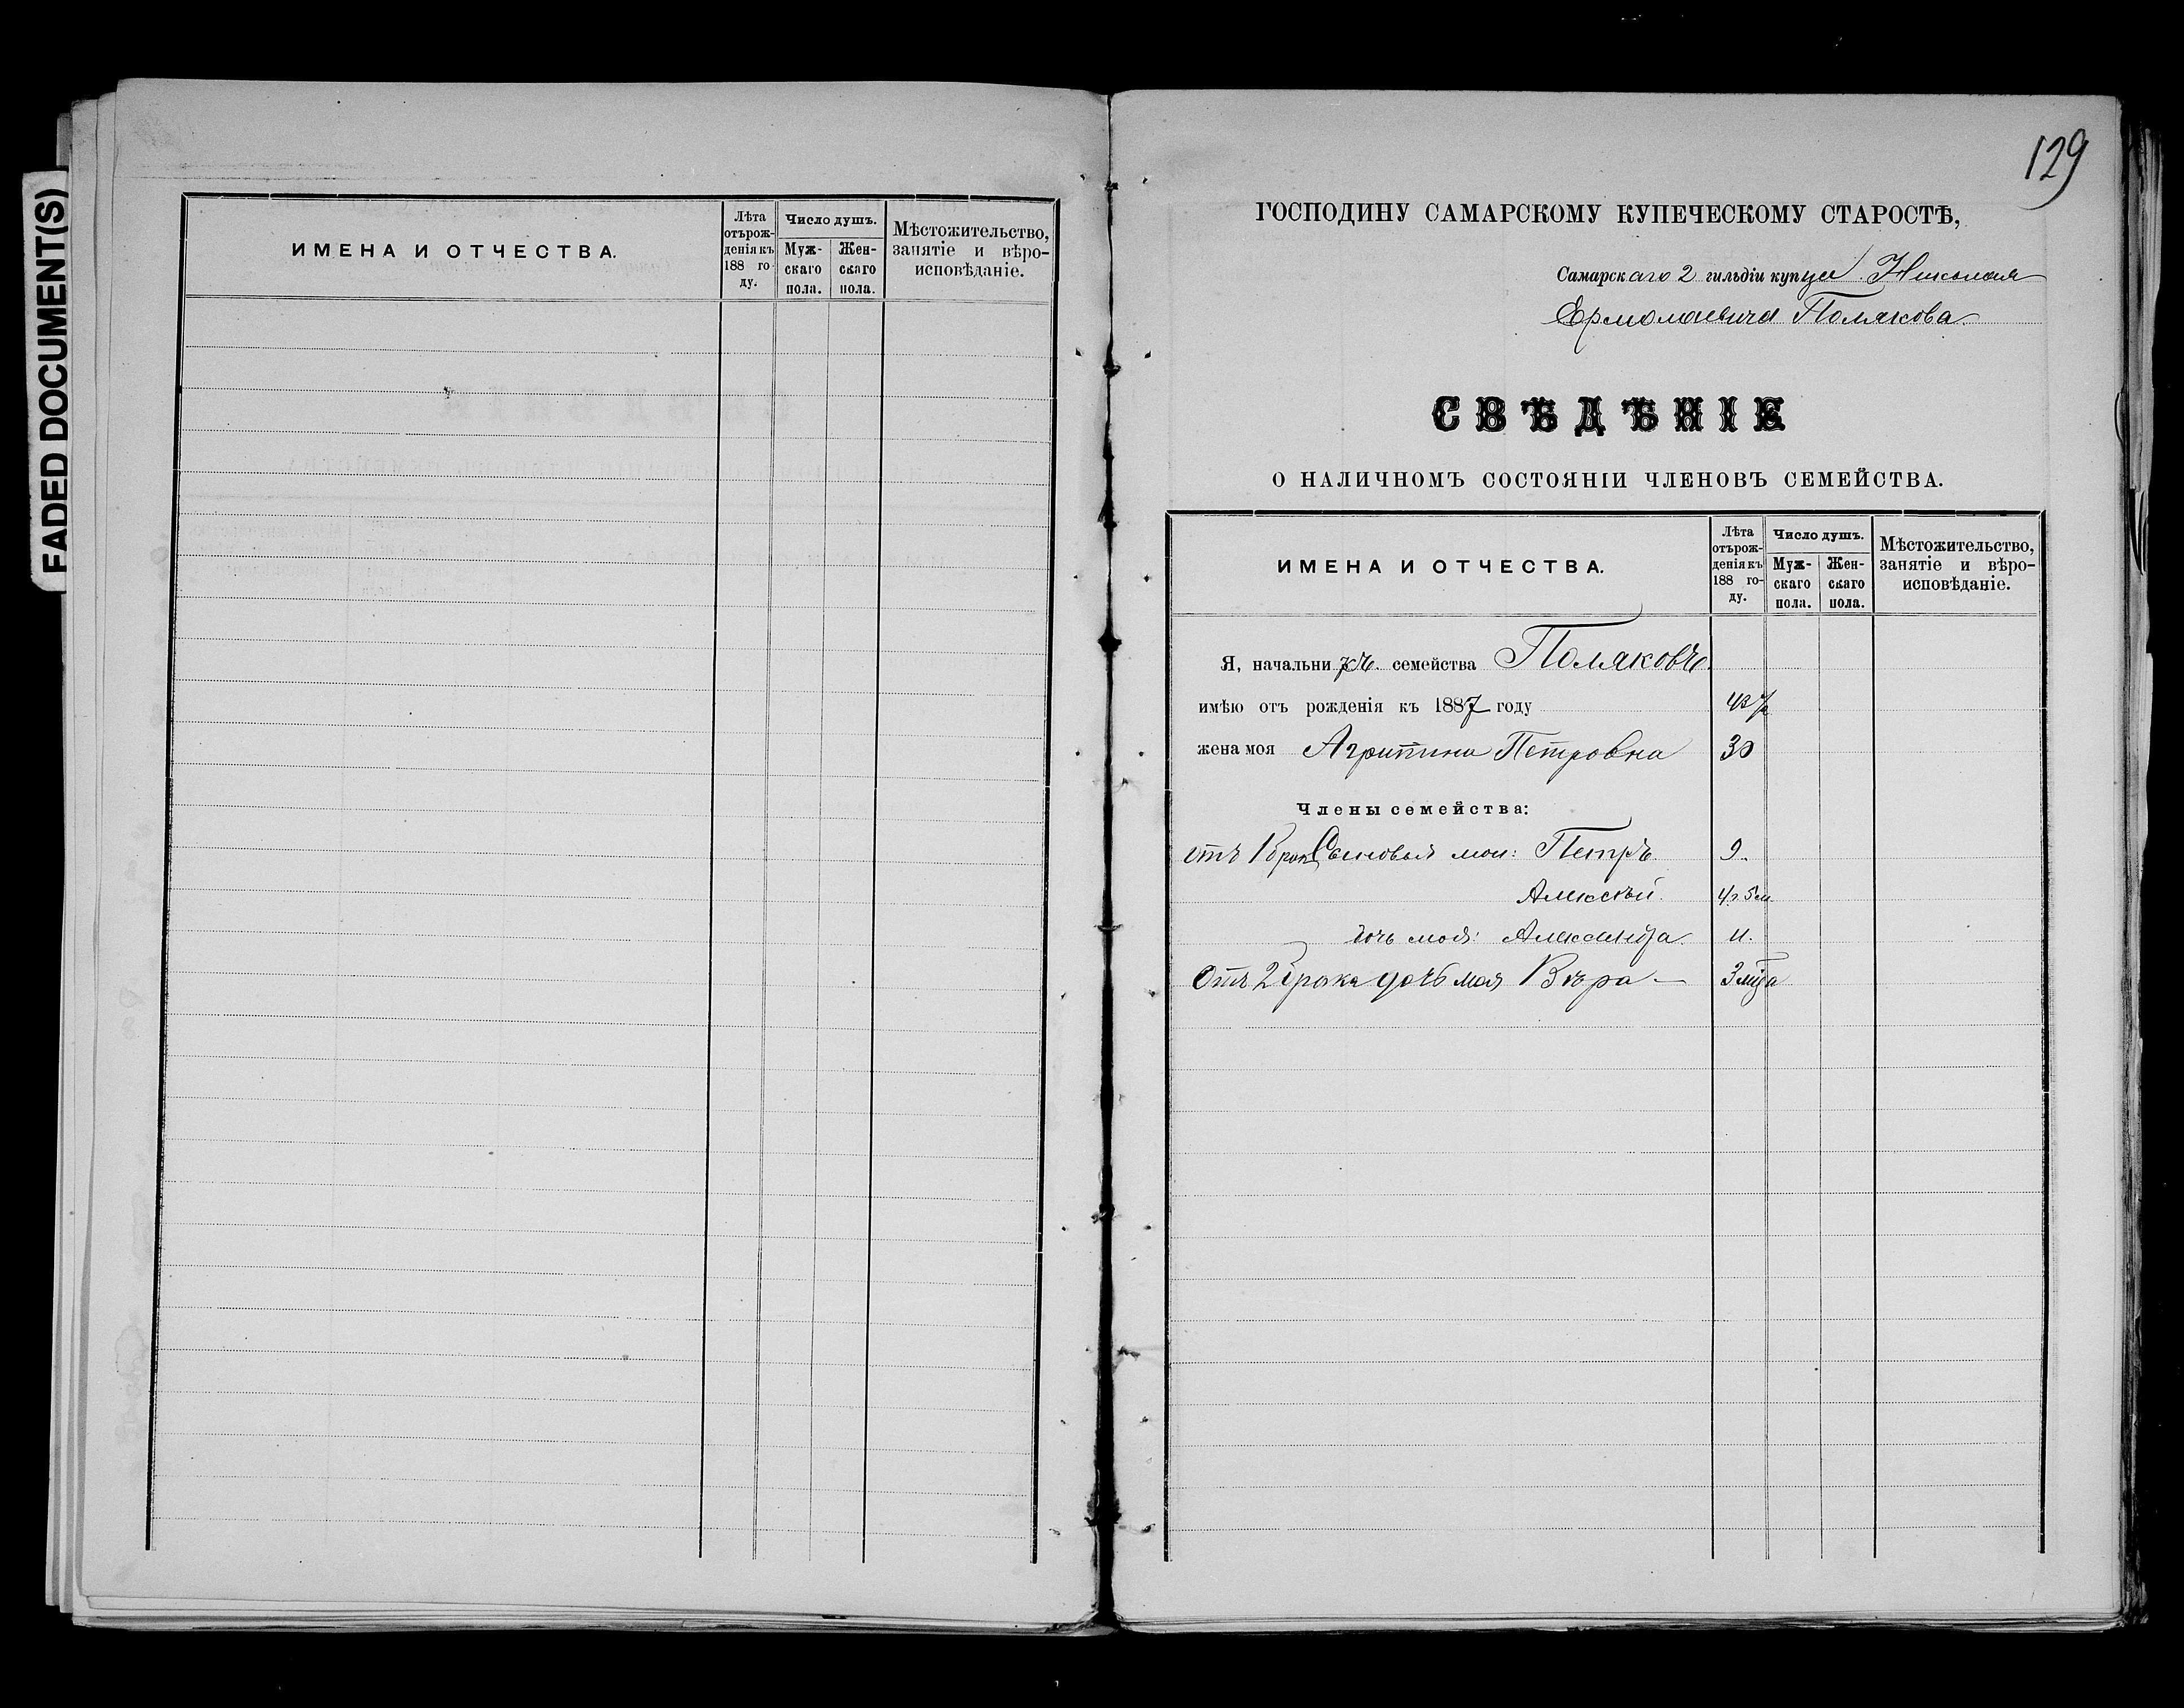 FADED DOCUMENT(S)
ИМЕНА И ОТЧЕСТВА.
Лѣта
отърож-
денія къ
188 го-
ду.
Число душъ.
Муж-
скаго
пола.
Жен-
скаго
пола.
Мѣстожительство,
занятіе и вѣро-
исповѣданіе.
129
ГОСПОДИНУ САМАРСКОМУ КУПЕЧЕСКОМУ СТАРОСТѢ,
Самарскаго 2 гильдіи купца Николая
Ермолаевича Полякова.
СВѢДѢНІЕ
О НАЛИЧНОМЪ СОСТОЯНІИ ЧЛЕНОВЪ СЕМЕЙСТВА.
ИМЕНА И ОТЧЕСТВА.
Лѣта
отърож-
денія къ
188 го-
ду.
Число душъ.
Муж-
скаго
пола.
Жен-
скаго
пола.
Мѣстожительство,
занятіе и вѣро-
исповѣданіе.
Я, начальникъ семейства Поляковъ.
имѣю отъ рожденія къ 1887 году
жена моя Агрипина Петровна 30
Члены семейства:
отъ 1 брака Сыновья мои: Петръ. 9.
Алексѣй. 4 г. 5 м.
дочь моя: Александра. 11.
Отъ 2 брака дочь моя Вѣра — 3 мѣс